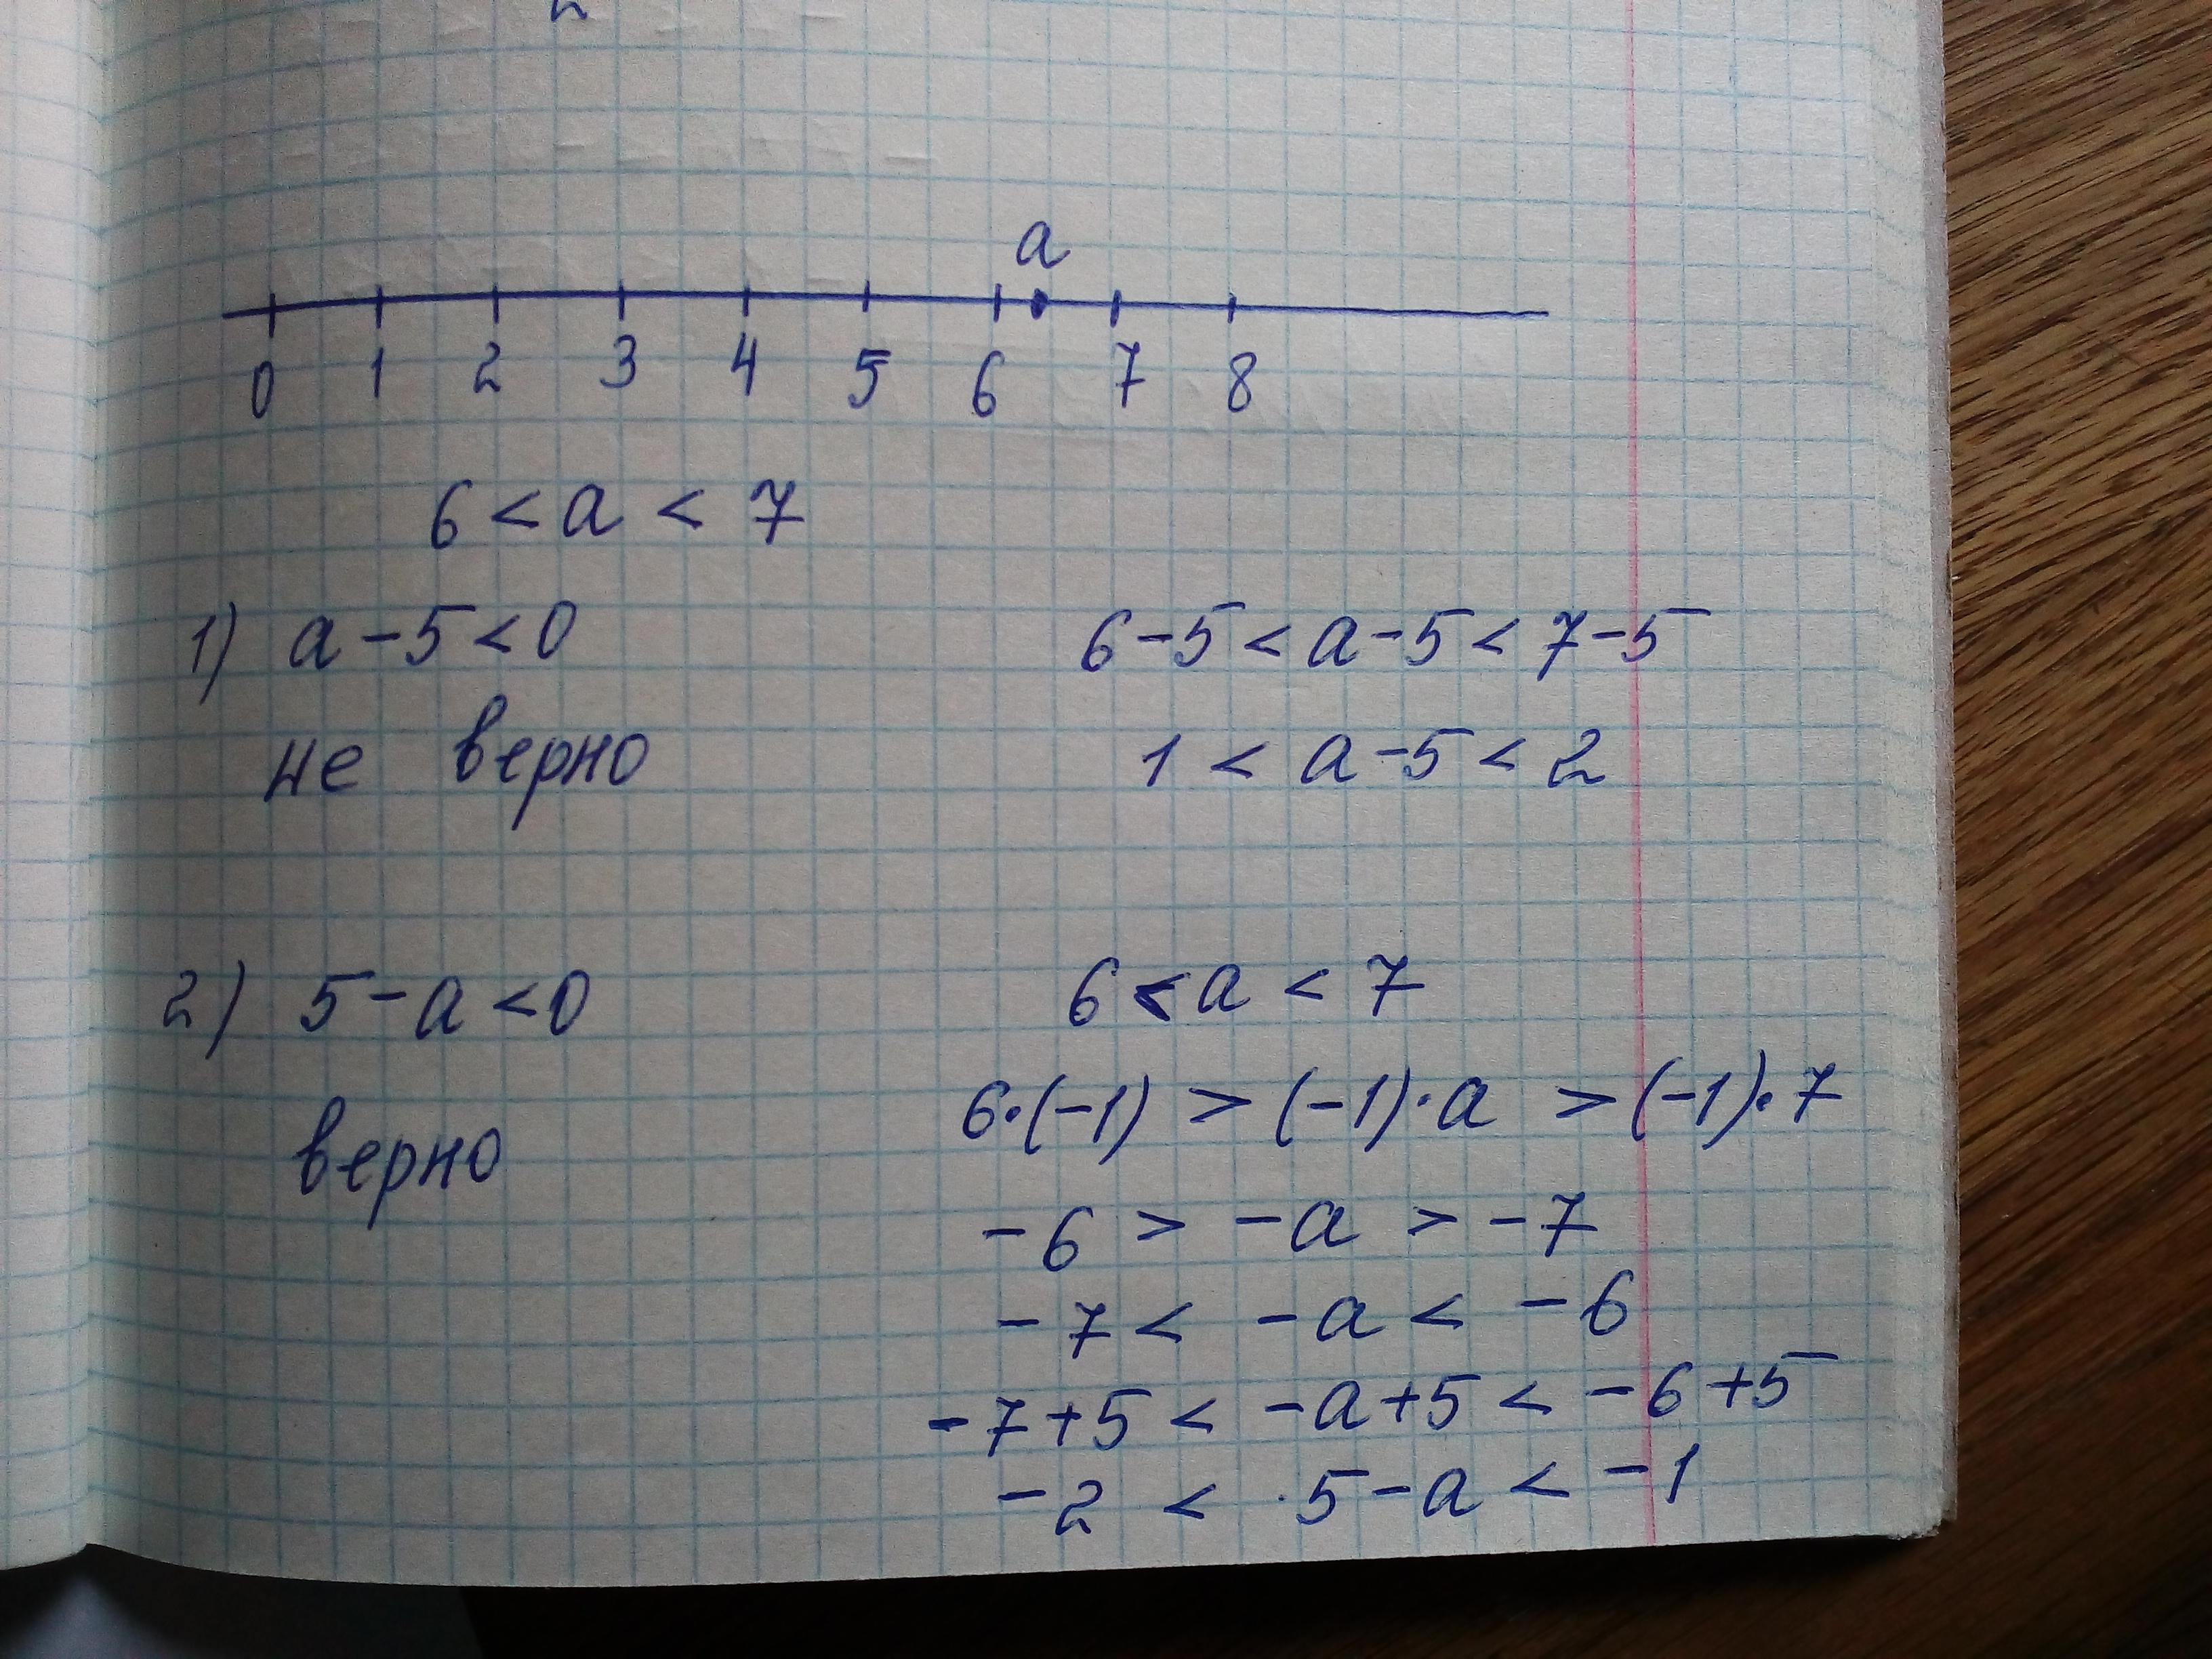 a
0 1 2 3 4 5 6 7 8
6 < a < 7
1) a - 5 < 0
6 - 5 < a - 5 < 7 - 5
не верно
1 < a - 5 < 2
2) 5 - a < 0
6 < a < 7
6·(-1) > (-1)·a > (-1)·7
верно
-6 > -a > -7
-7 < -a < -6
-7+5 < -a+5 < -6+5
-2 < 5-a < -1